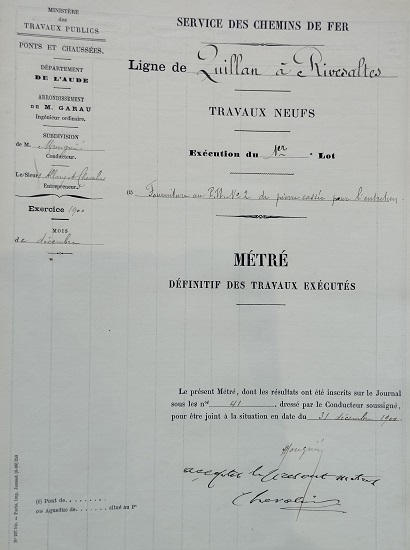 MINISTÈRE
des
TRAVAUX PUBLICS
PONTS ET CHAUSSÉES.
DÉPARTEMENT
DE L'AUDE
ARRONDISSEMENT
DE M. GARAU
Ingénieur ordinaire.
SUBDIVISION
de M. Mouguié
Conducteur.
Le Sieur Allary et Chevalier
Entrepreneur.
Exercice 1900
MOIS
de décembre
SERVICE DES CHEMINS DE FER
Ligne de Quillan à Rivesaltes
TRAVAUX NEUFS
Exécution du 1er Lot
(1) Fourniture au P.N. No 2 de pierre cassée pour l'entretien
MÉTRÉ
DÉFINITIF DES TRAVAUX EXÉCUTÉS
Le présent Métré, dont les résultats ont été inscrits sur le Journal
sous les nos 41, dressé par le Conducteur soussigné,
pour être joint à la situation en date du 31 décembre 1900
accepter le présent métré
Chevalier
(1) Pont de . . . . . . . .
ou Aqueduc de . . . . . . situé au Pt